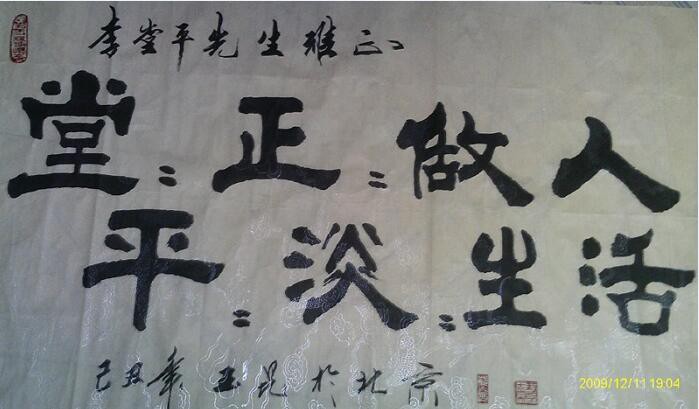 李堂平先生雅正
堂〻正〻做人
平〻淡〻生活
己丑年玉昆於北京
2009/12/11 19:04